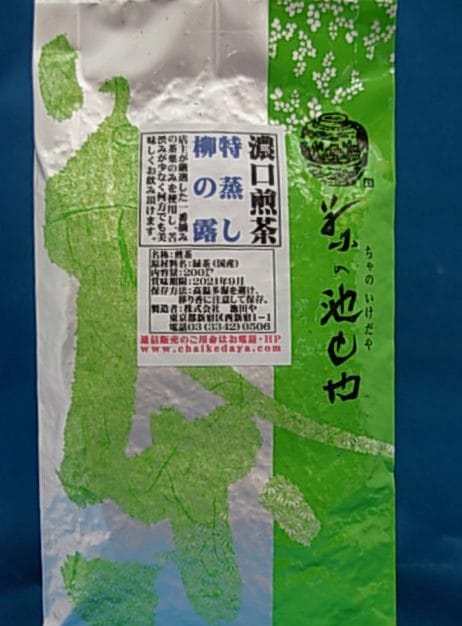 濃口煎茶
特蒸し
柳の露
店主が厳選した一番摘み
の茶葉のみを使用し、苦
渋みが少なく何方でも美
味しくお飲み頂けます。
名称:煎茶
原材料名:緑茶(国産)
内容量:200㌘
賞味期限:2021年9月
保存方法:高温多湿を避け、
移り香に注意して保存。
製造者:株式会社 池田や
東京都新宿区西新宿1-1
電話03(3342)0506
通信販売のご用命はお電話・HP
www.chaikedaya.com
茶の池田や
ちゃの いけだや
茶